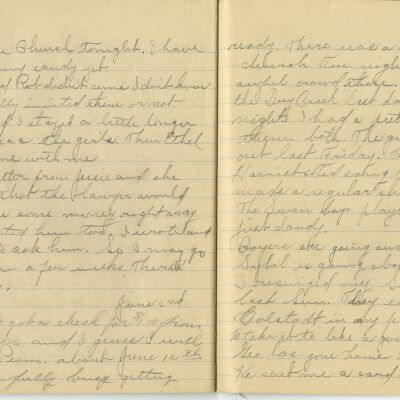 e Church tonight. I have
ny candy yet.
d Rob didn't come I don't know
lly invited them or not
d I stayed a little longer
as the girls. Then Ethel
me with me.
tter from Jessie and she
that the lawyer would
e some money right away
ted him too, I wrote and
to ask him. So I may go
n a few weeks. There
June 2nd.
got a check for from
and I guess I will
about June 12th
wfully busy getting
ready. There was a
church Tue. night
awful crowd there.
the Day Creek last
night. I had a
them both. The
out last Friday.
Harriet
made a regular
The Swan boys play
just dandy.
Boyers are going
Sybil is going
I resigned my S
last Sun. They
Tolstadt in my p
to take it to like a
Geo. has gone home
He sent me a card